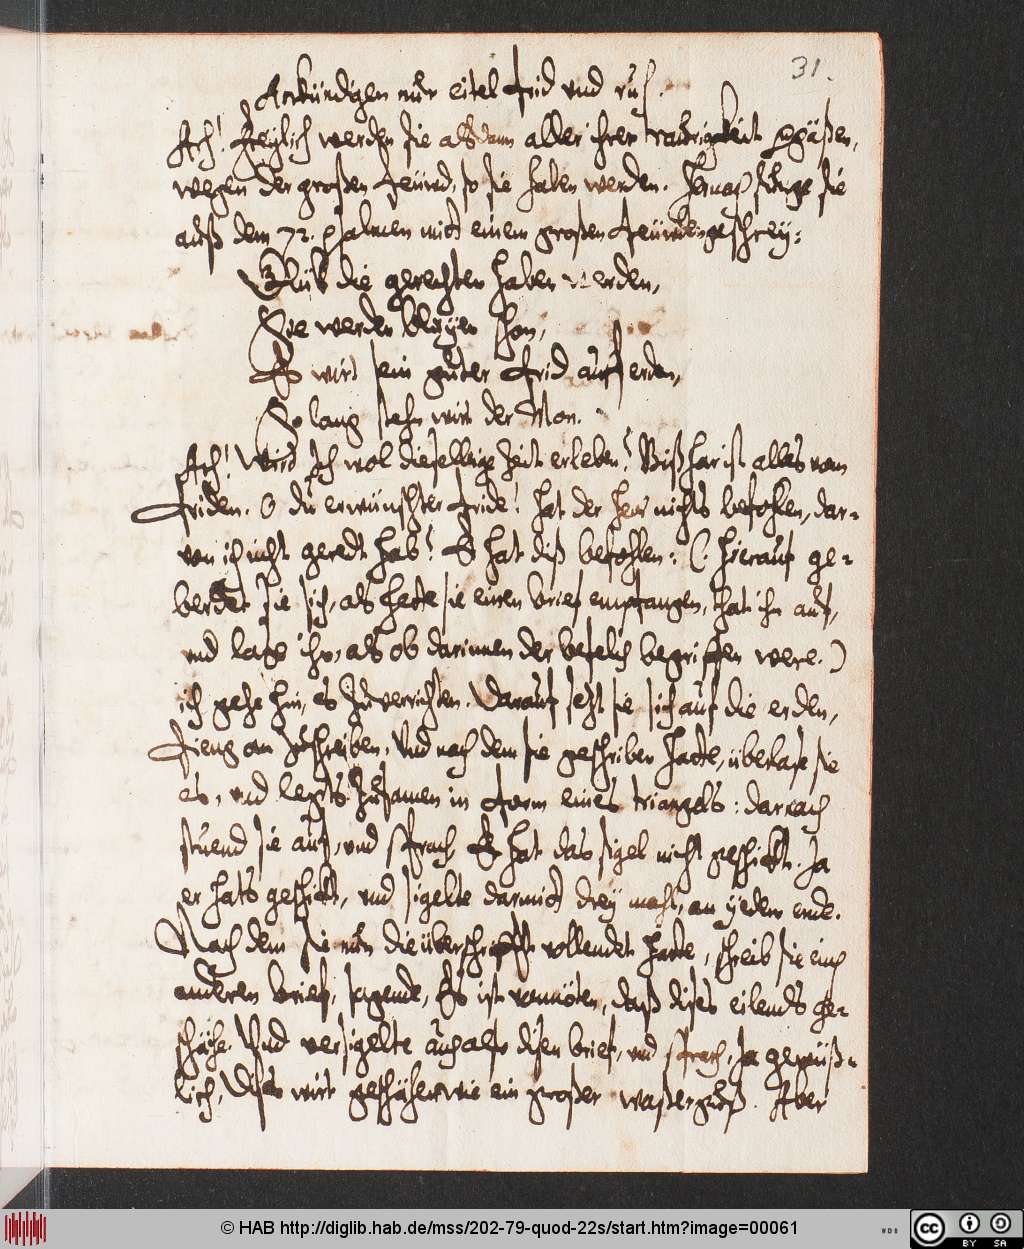 31.
Ankündigen nur eitel frid und ruh.
Ach! freylich werden sie alsdann aller ihrer traurigkeit vergäßen,
wegen der großen freüwd, so sie haben werden. Hernach singe sie
auß dem 72. Psalmen mit einem großen freüdengeschrey:
Glük die gerechten haben werden,
Sie werden blüyen schon,
Es wirt sein guter frid auf erden,
So lang stehn wirt der Mon.
Ach! wird ich wol dieselbige zeit erleben? Bißhar ist alles vom
friden. O du erwünschter fride! hat der herr nichts befohlen, dar-
von ich nicht geredt hab? Er hat diß befohlen: (: hierauf ge-
berdet sie sich, als hette sie einen brief empfangen, that ihn auf,
und lase ihn, als ob darinnen der befelch begriffen were.)
ich gehe hin, es zu verrichten. Darauf setzt sie sich auf die erden,
fieng an zuschreiben. Und nach dem sie geschriben hatte, überlase sie
es, und legts zusamen in form eines triangels: darnach
stuend sie auf, und sprach, Er hat das sigel nicht geschickt. Ja
er hats geschickt, und sigelte darmit drey mahl, an yedem ende.
Nach dem sie nun die überschrifft vollendet hatte, schreib sie ein
anderen brief, sagende, Es ist vonnöten, daß dises eilends ge-
schähe. Und versigelte auch also disen brief, und sprach, Ja gewüß-
lich, Dises wirt geschähen wie ein großer waßerguß. Aber
© HAB http://diglib.hab.de/mss/202-79-quod-22s/start.htm?image=00061
WDB
cc BY SA